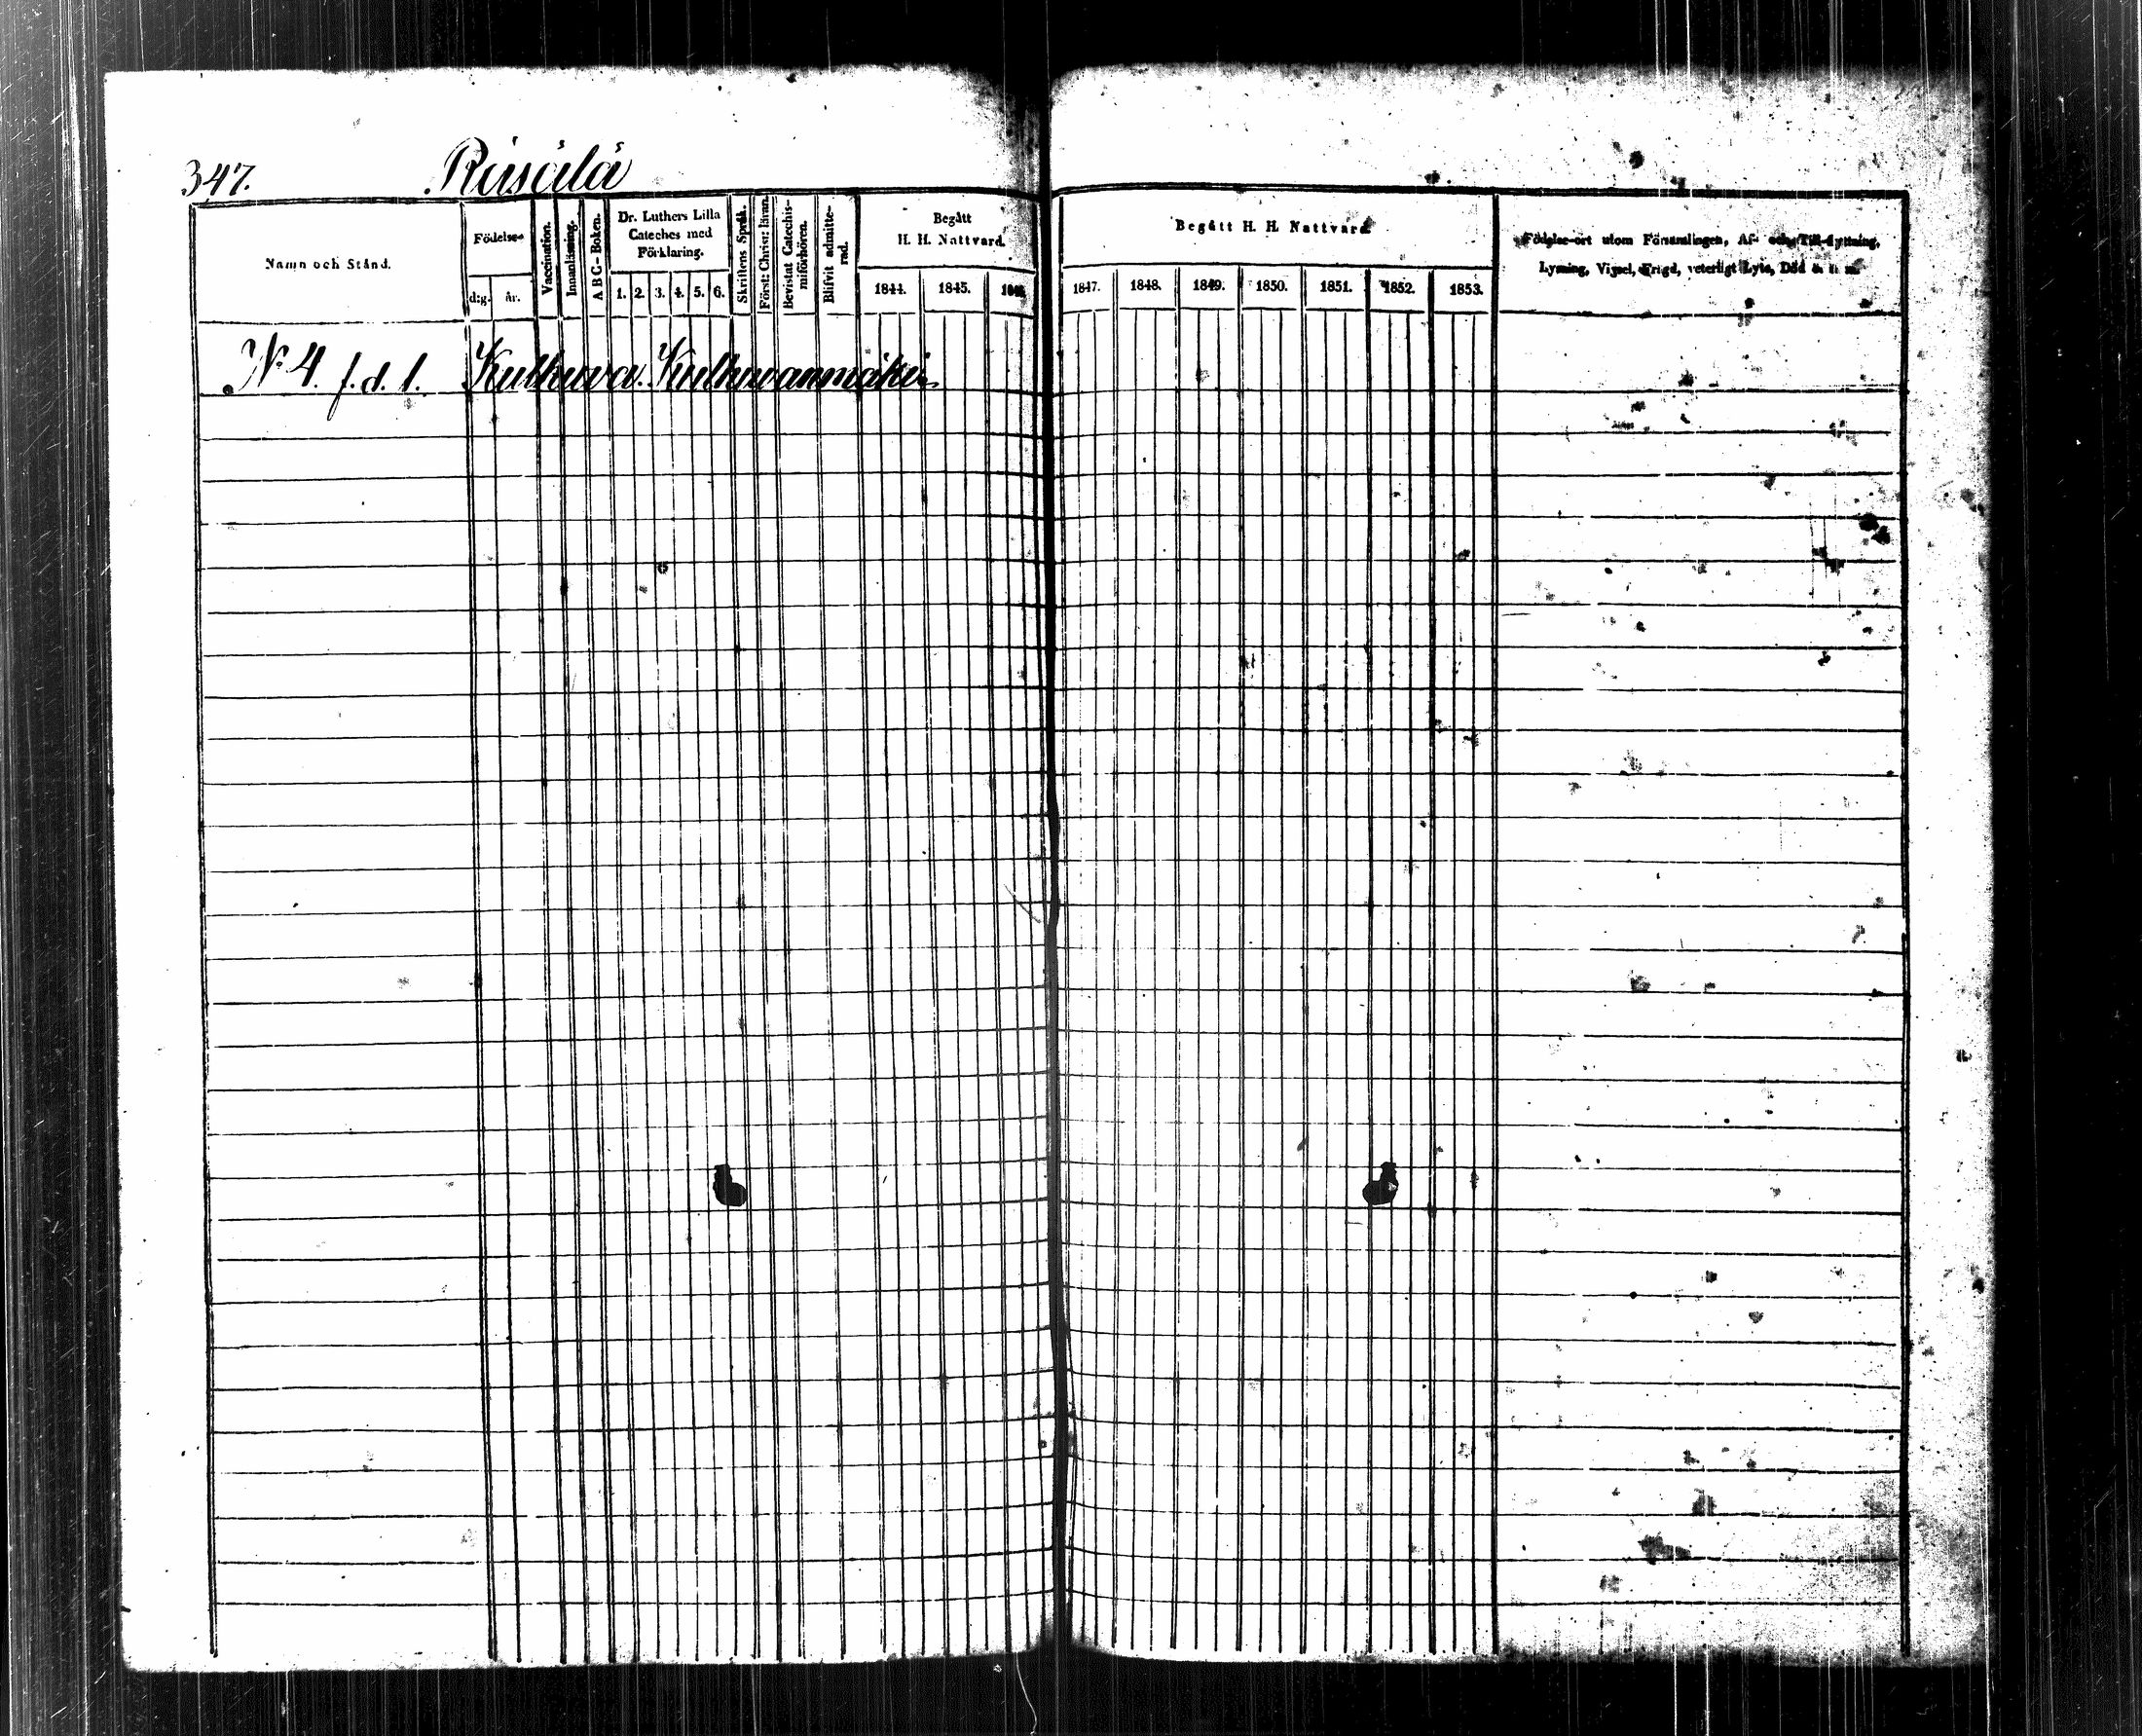 347. Räisälä
Namn och Stånd.
Födelse-
d:g. år.
Vaccination.
Innanläsning.
A B C-Boken.
Dr. Luthers Lilla
Cateches med
Förklaring.
1. 2. 3. 4. 5. 6.
Skriftens Språk.
Först: Christ: läran.
Bevistat Catechis-
miförhören.
Blifvit admitte-
rad.
Begått
H. H. Nattvard.
1844. 1845. 1846.
Begått H. H. Nattvard
1847. 1848. 1849. 1850. 1851. 1852. 1853.
Födelse-ort utom Församlingen, Af- och Till-flyttning,
Lysning, Vigsel, Frägd, veterligt Lyte, Död m. m.
N 4. f. d. 1. Kulkuva. Kulkuvanmäki